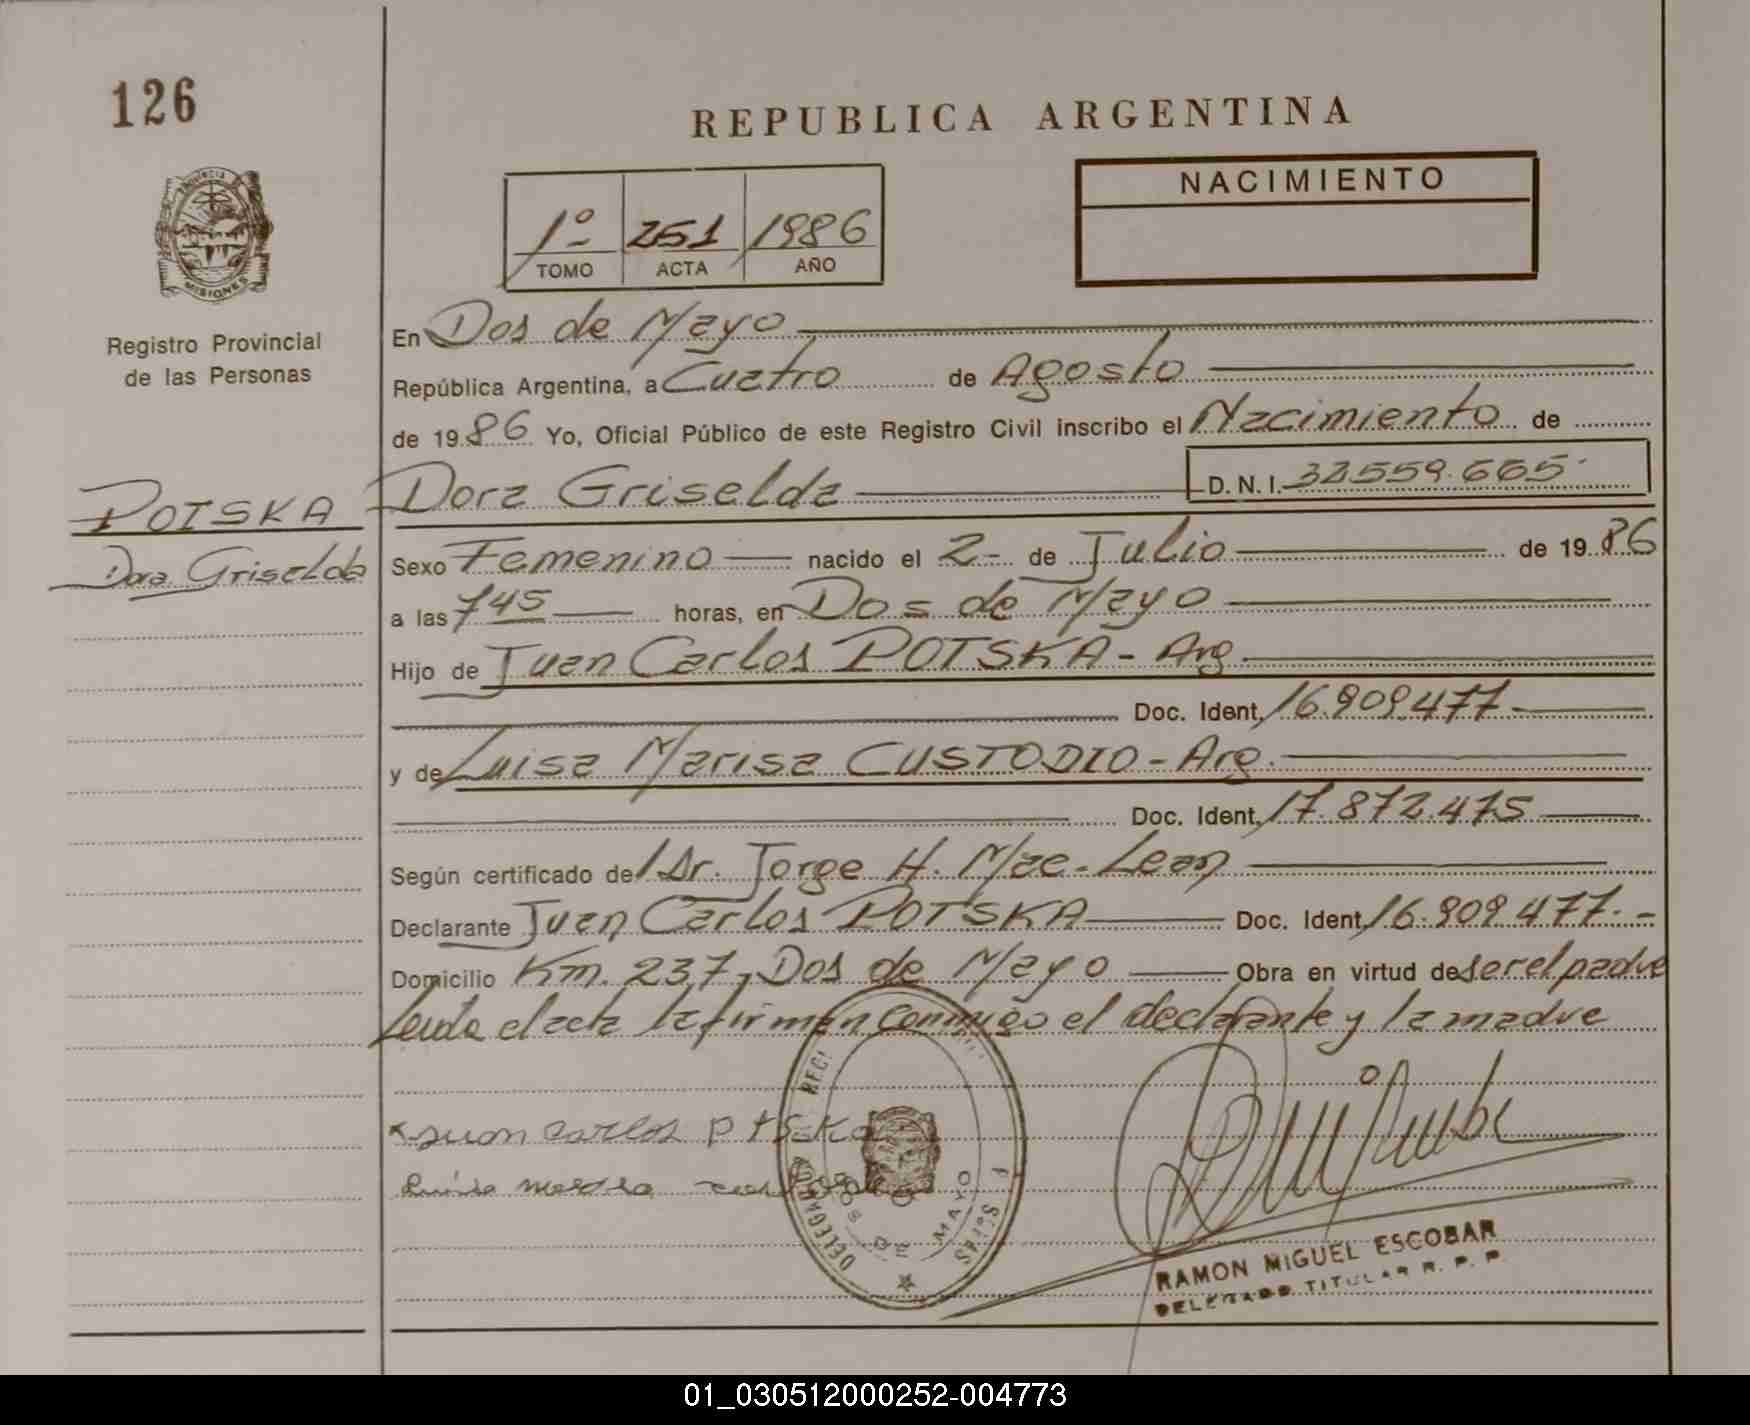 126
REPUBLICA ARGENTINA
NACIMIENTO
1º 251 1986
TOMO ACTA AÑO
MISIONES
Registro Provincial
de las Personas
En Dos de Mayo
República Argentina, a Cuatro de Agosto
de 1986 Yo, Oficial Público de este Registro Civil inscribo el Nacimiento de
POTSKA
Dora Griselda
Dora Griselda D.N.I. 32559.665
Sexo Femenino nacido el 2- de Julio de 1986
a las 745 horas, en Dos de Mayo
Hijo de Juan Carlos POTSKA - Arg.
Doc. Ident. 16.909.477
y de Luisa Marisa CUSTODIO - Arg.
Doc. Ident. 17.872.475
Según certificado del Dr. Jorge H. Mac-Lean
Declarante Juan Carlos POTSKA Doc. Ident. 16.909.477.-
Domicilio Km. 237, Dos de Mayo Obra en virtud de ser el padre
Leida el acta la firman conmigo el declarante y la madre
Juan Carlos Ptska
DOS DE MAYO
RAMON MIGUEL ESCOBAR
DELEGADO TITULAR R. P. P.
01_030512000252-004773